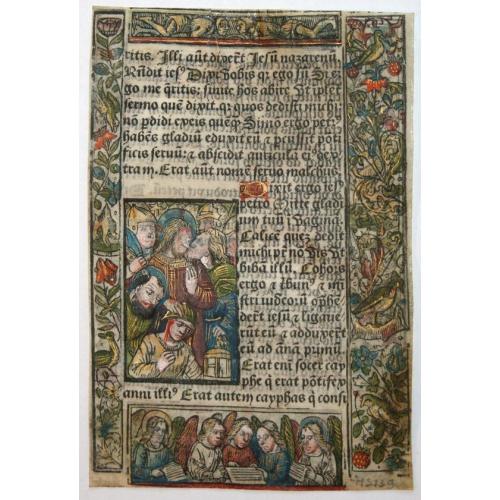 ritis. Illi aūt dixerūt Iesū nazarenū.
Rn̄dit iesꝰ Dixi vobis qꝛ ego sū Si
go me qritis: sinite hos abire Vt implet
sermo quē dixit. qꝛ quos dedisti michi
nō pdidi ex eis quēqꝫ Simō ergo petꝰ
habēs gladiū eduxit eū & pcussit pōti
ficis seruū: & abscidit auriculā eiꝰ dex
tram. Erat aūt nomē seruo malchus.
Dixit ergo iesꝰ
petro Mitte gladi
um tuū
Calicē quē dedit
michi pr̄ nō vis vt
bibā illū. Cohors
ergo & tbunꝰ & mi
stri iudeoū
derūt iesū & ligaue
rūt eū & adduxerūt
eū ad annā primū.
Erat em̄ socer cay
phe q̄ erat pōtifex
anni illiꝰ Erat autem cayphas q̄ consi